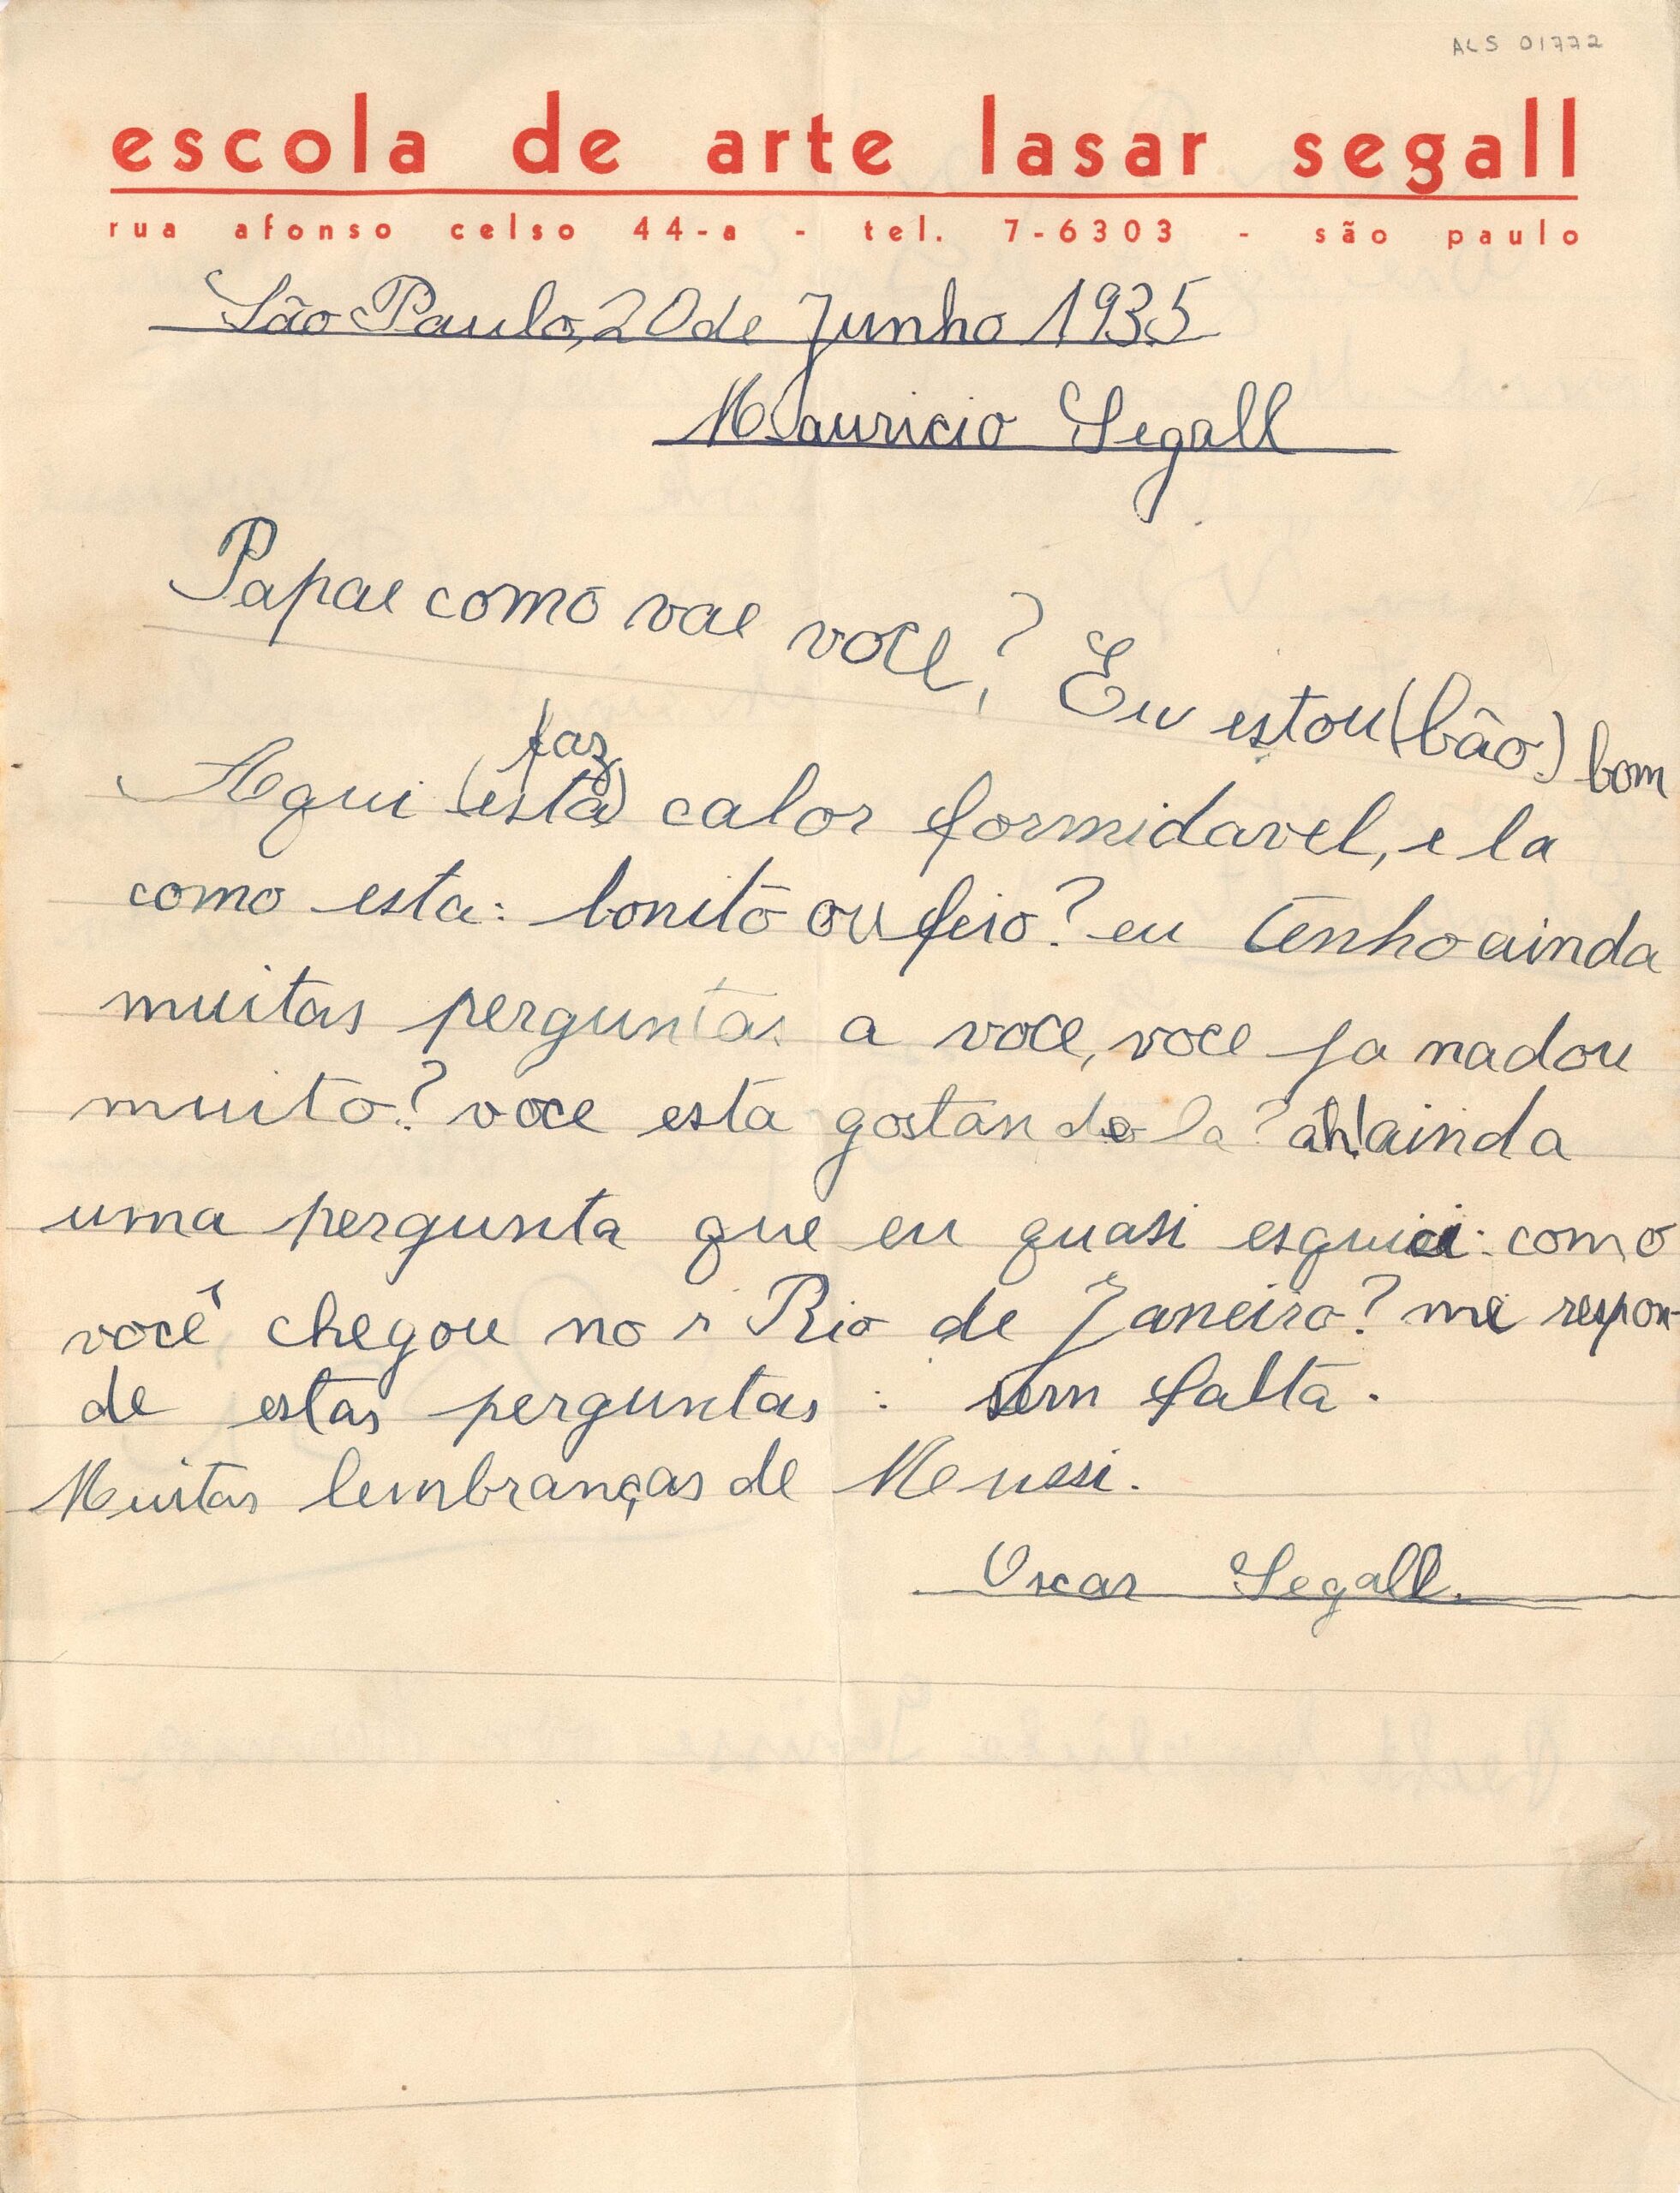 ALS 01772
escola de arte lasar segall
rua afonso celso 44-a - tel. 7-6303 - são paulo
São Paulo, 20 de Junho 1935
Mauricio Segall
Papae como vae voce,? Eu estou (bão) bom
faz
Aqui (está) calor formidavel, e la
como esta: bonito ou feio? eu tenho ainda
muitas perguntas a voce, voce ja nadou
muito? voce esta gostando la? ah! ainda
uma pergunta que eu quasi esquici: como
você chegou no r Rio de Janeiro? me respon-
de estas perguntas : sem falta.
Muitas lembranças de Maussi.
Oscar Segall.